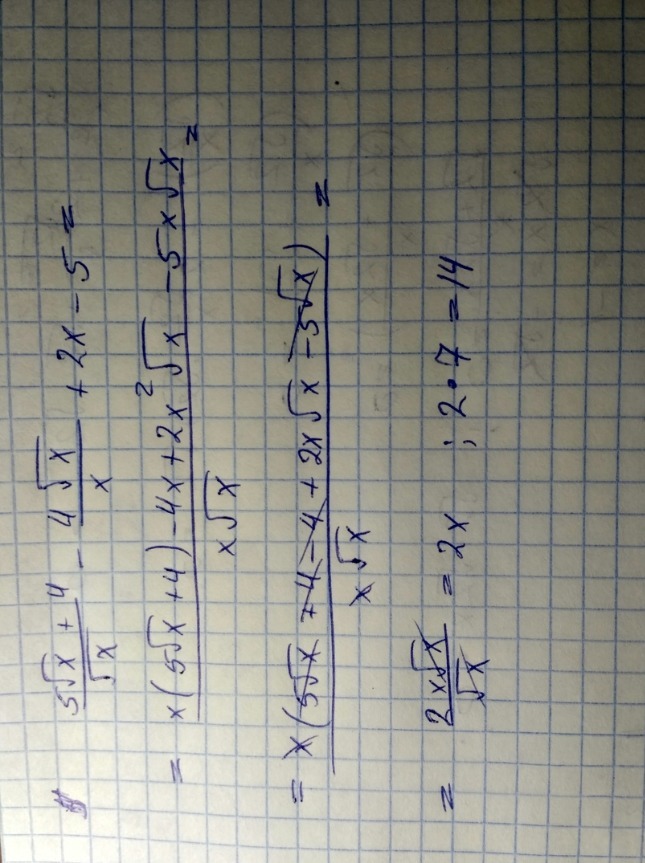 (5√x + 4)/√x - 4√x/x + 2x - 5 =
= (x(5√x + 4) - 4x + 2x²√x - 5x√x)/(x√x) =
= x(5√x + 4 - 4 + 2x√x - 5√x)/(x√x) =
= 2x√x/√x = 2x ; 2•7 = 14